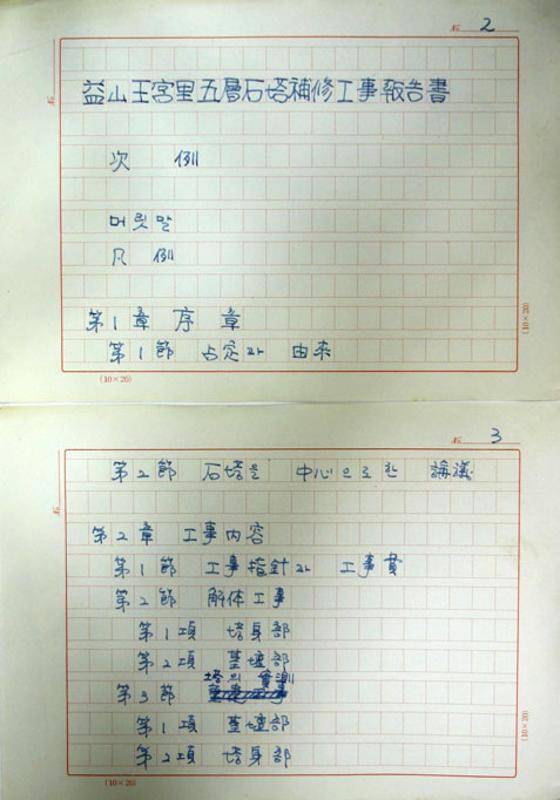 No. 2
益山王宮里五層石塔補修工事報告書
次 例
머릿말
凡 例
第1章 序 章
第1節 占定과 由来
(10×20)
(10×20)
No. 3
第2節 石塔을 中心으로한 論議
第2章 工事内容
第1節 工事指針과 工事費
第2節 解体工事
第1項 塔身部
第2項 基壇部
第3節 塔의 實測
第1項 基壇部
第2項 塔身部
(10×20)
(10×20)